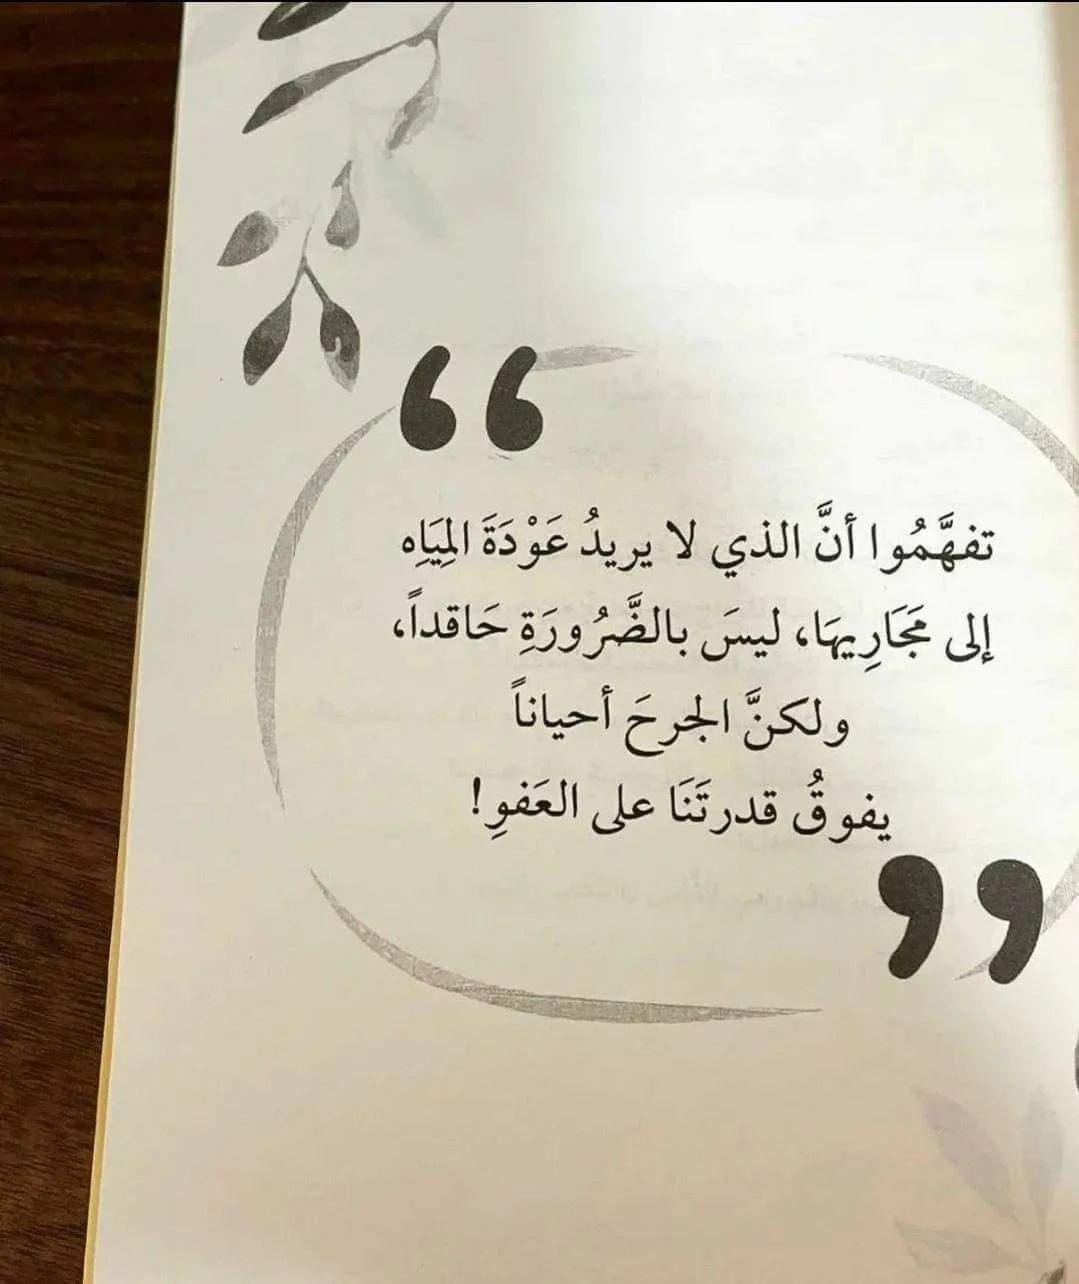 تفهَّمُوا أنَّ الذي لا يريدُ عَوْدَةَ المِيَاهِ
إلى مَجَارِيهَا، ليسَ بالضَّرُورَةِ حَاقداً،
ولكنَّ الجرحَ أحياناً
يفوقُ قدرتَنَا على العَفوِ!